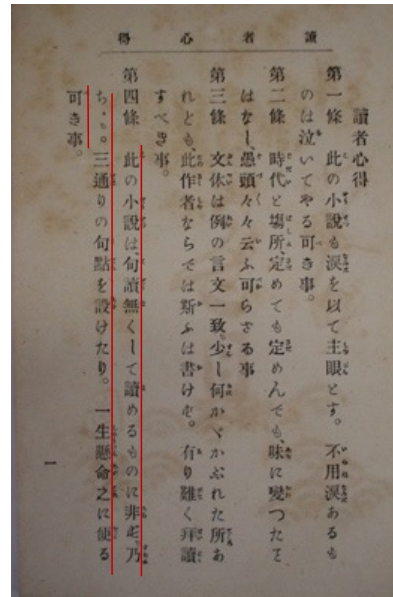 讀者心得
讀者心得
第一條 此の小説も涙を以て主眼とす。不用涙あるも
のは泣いてやる可き事。
第二條 時代と塲所、定めても定めんでも、味に變つたと
はなし、愚頭々々云ふ可らざる事
第三條 文体は例の言文一致、少し何かゞかぶれた所あ
れども、此作者ならでは斯ふは書けぬ。有り難く拜讀
すべき事。
第四條 此の小説は、句讀無くして讀めるものに非ず、乃
ち、。三通りの句點を設けたり。一生懸命之に便る
可き事。
一